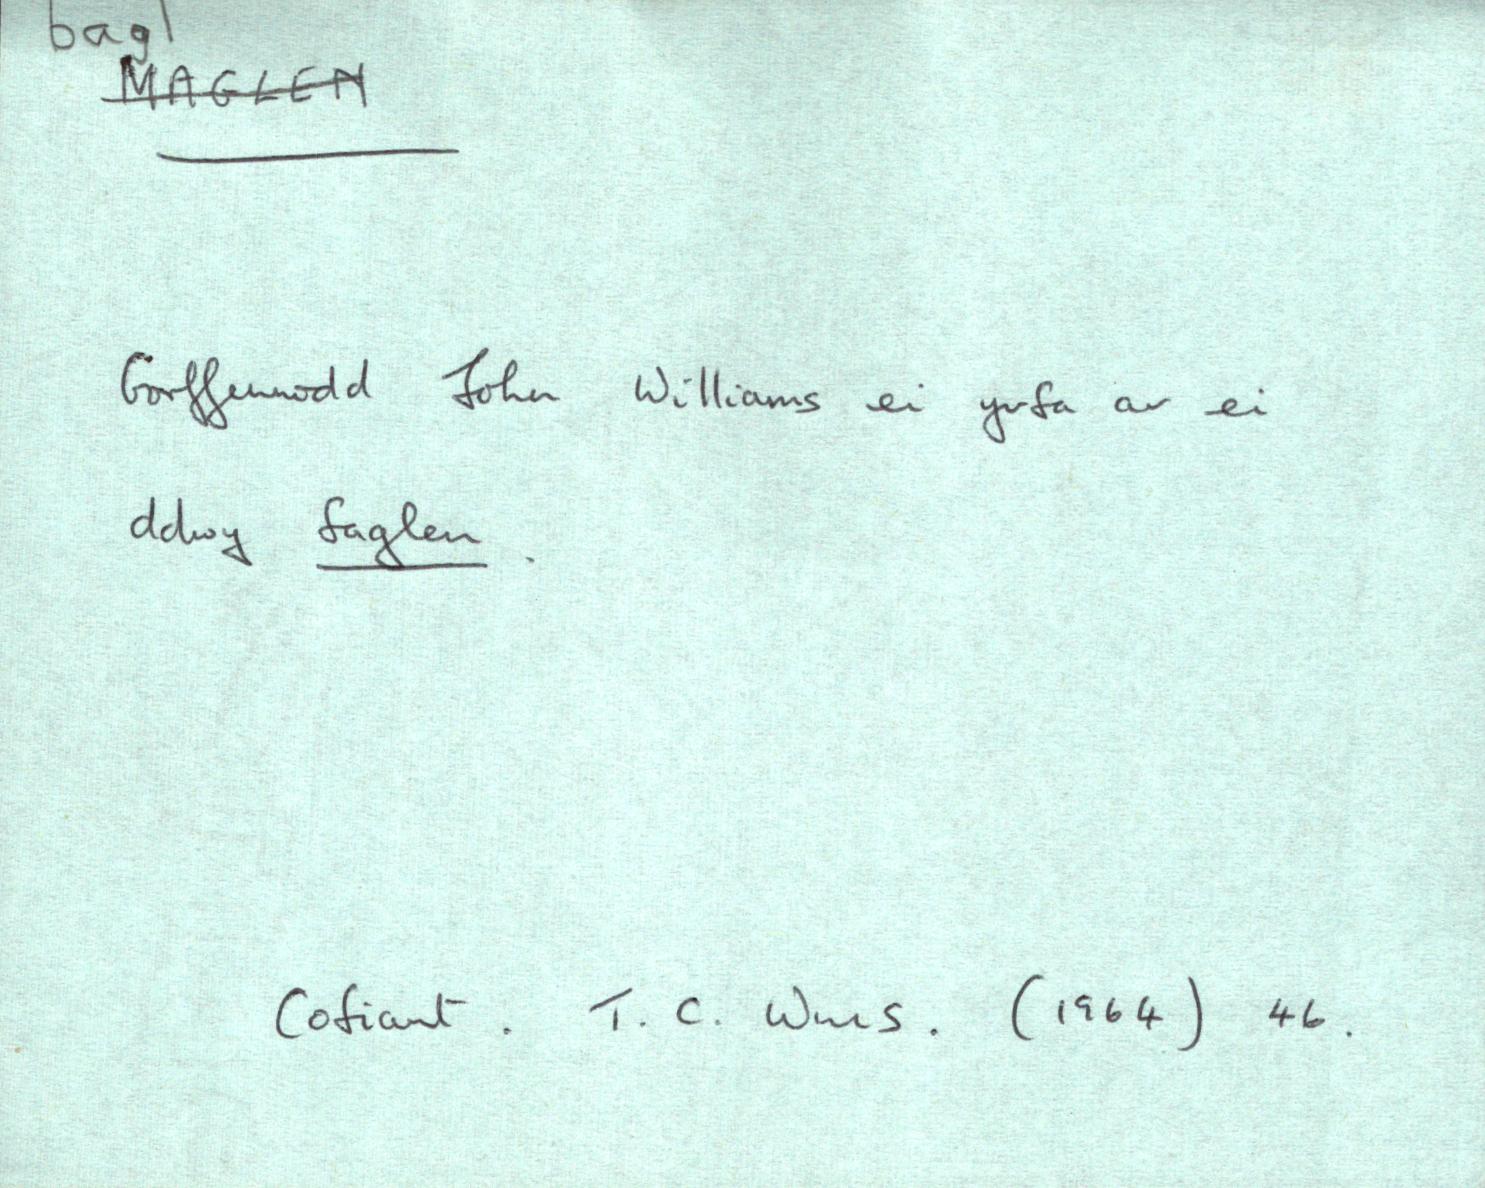 bagl
MAGLEN
Gorffennodd John Williams ei yrfa ar ei
ddwy faglen.
Cofiant. T. C. Wms. (1964) 46.